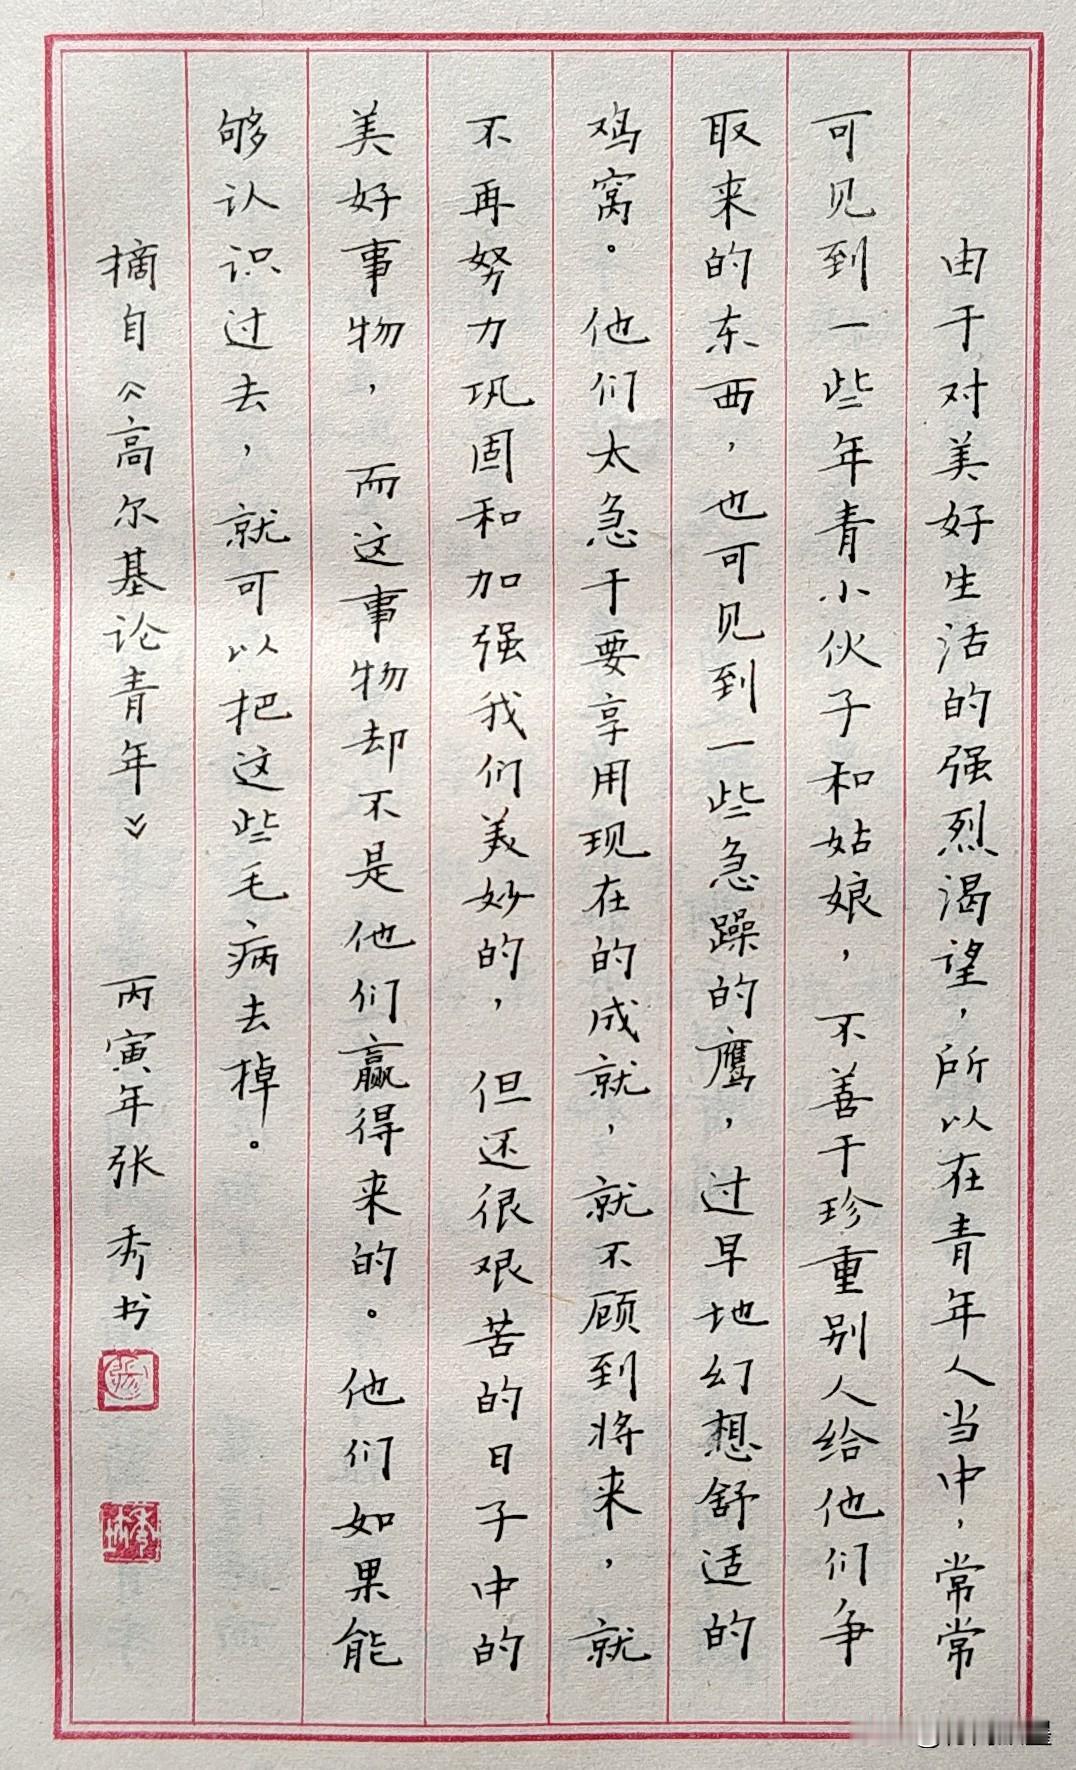 由于对美好生活的强烈渴望，所以在青年人当中，常常
可见到一些年青小伙子和姑娘，不善于珍重别人给他们争
取来的东西，也可见到一些急躁的鹰，过早地幻想舒适的
鸡窝。他们太急于要享用现在的成就，就不顾到将来，就
不再努力巩固和加强我们美妙的，但还很艰苦的日子中的
美好事物，而这事物却不是他们赢得来的。他们如果能
够认识过去，就可以把这些毛病去掉。
摘自《高尔基论青年》 丙寅年张秀书